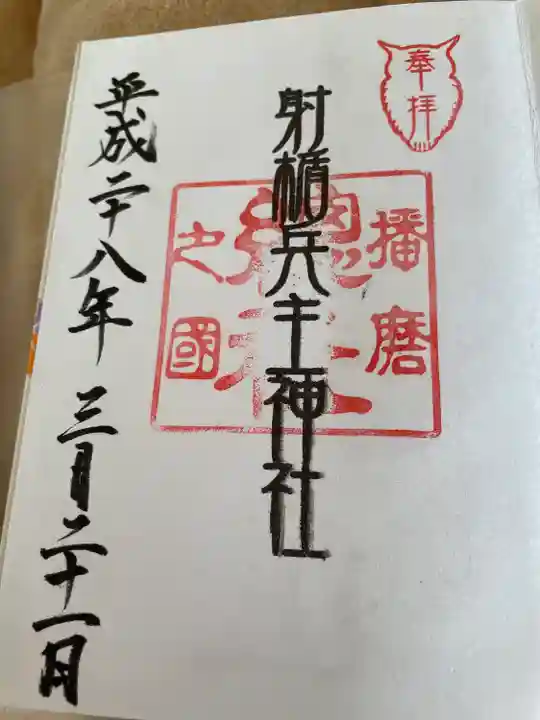 奉拝
射楯兵主神社
播磨
總社
之國
平成二十八年 三月二十一日